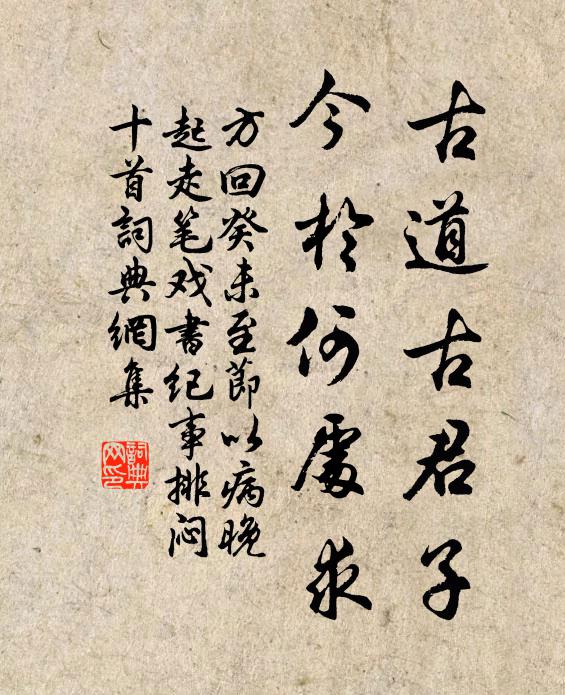 古道古君子
今於何處求
方回癸未至節以病晚
起走笔戏書纪事排闷
十首詞典網集
詞典
网印